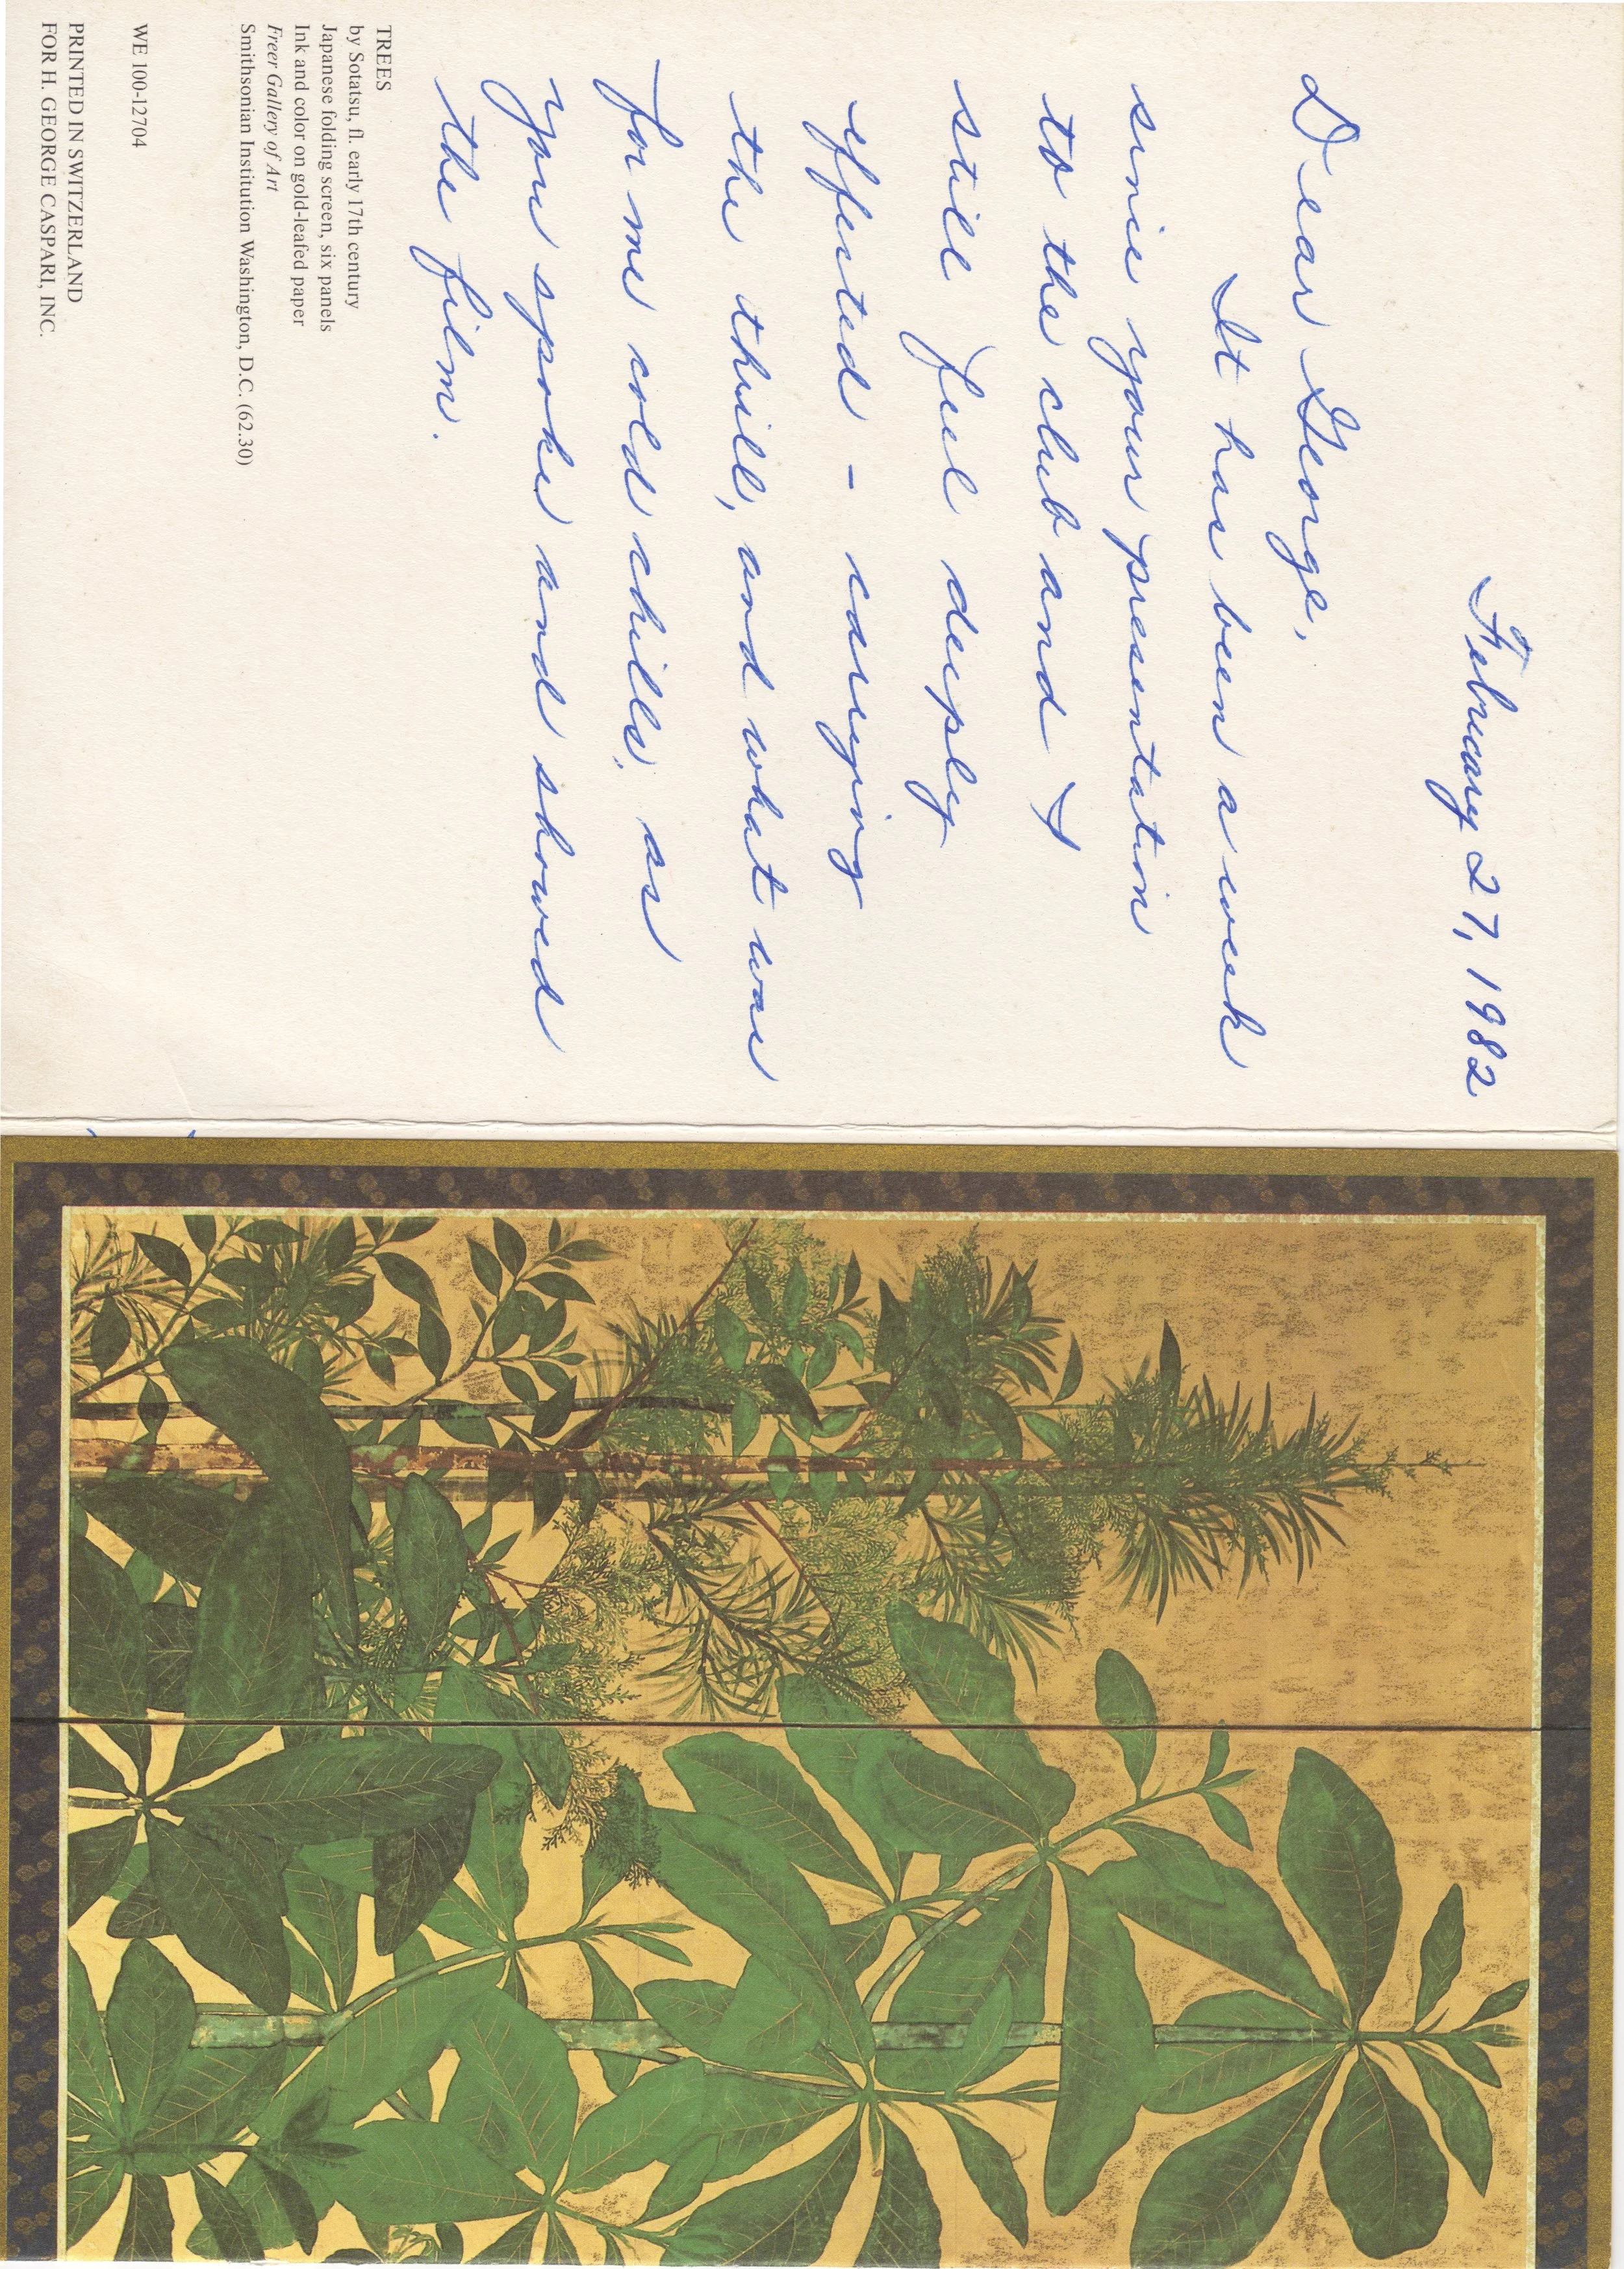 February 27, 1982
Dear George,
It has been a week
since your presentation
to the club and I
still feel deeply
effected - carrying
the thrill, and what was
for me cold chills, as
you spoke and showed
the film.
TREES
by Sotatsu, fl. early 17th century
Japanese folding screen, six panels
Ink and color on gold-leafed paper
Freer Gallery of Art
Smithsonian Institution Washington, D.C. (62.30)
WE 100-12704
PRINTED IN SWITZERLAND
FOR H. GEORGE CASPARI, INC.